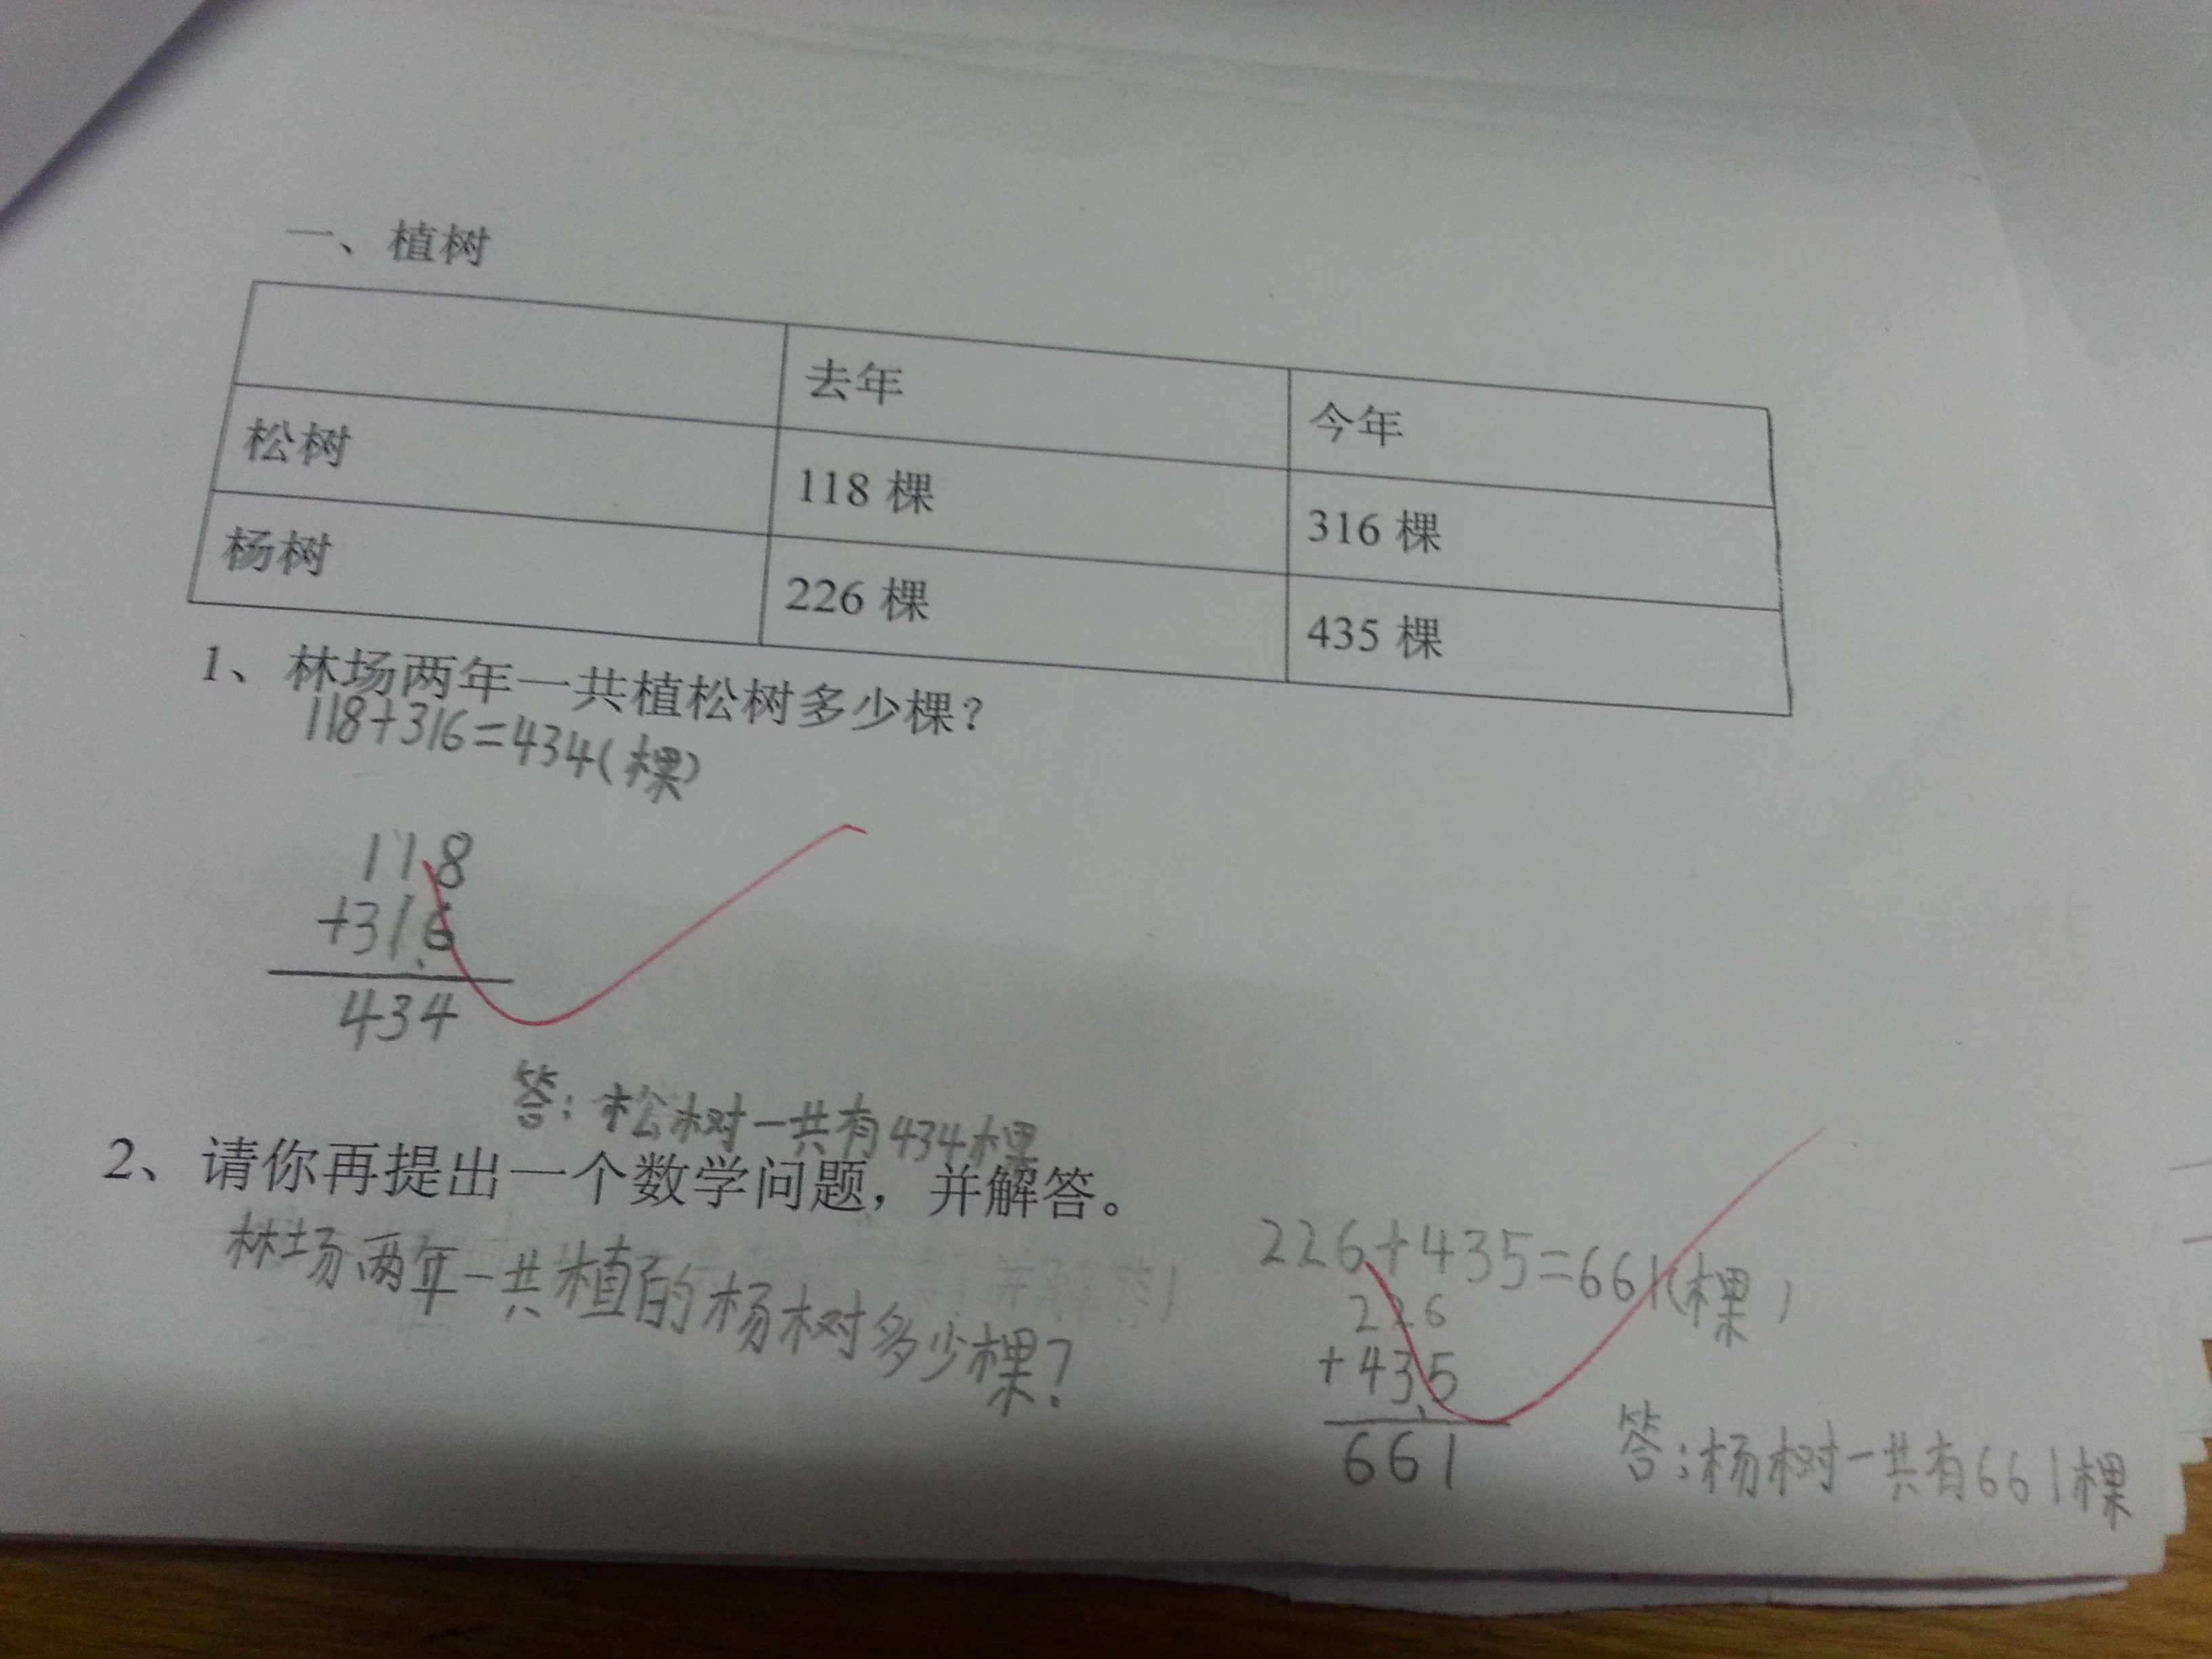 一、植树
去年 今年
松树 118 棵 316 棵
杨树 226 棵 435 棵
1、林场两年一共植松树多少棵?
118+316=434(棵)
118
+316
434
答:松树一共有434棵
2、请你再提出一个数学问题，并解答。
林场两年一共植的杨树多少棵?
226+435=661(棵)
226
+435
661
答:杨树一共有661棵